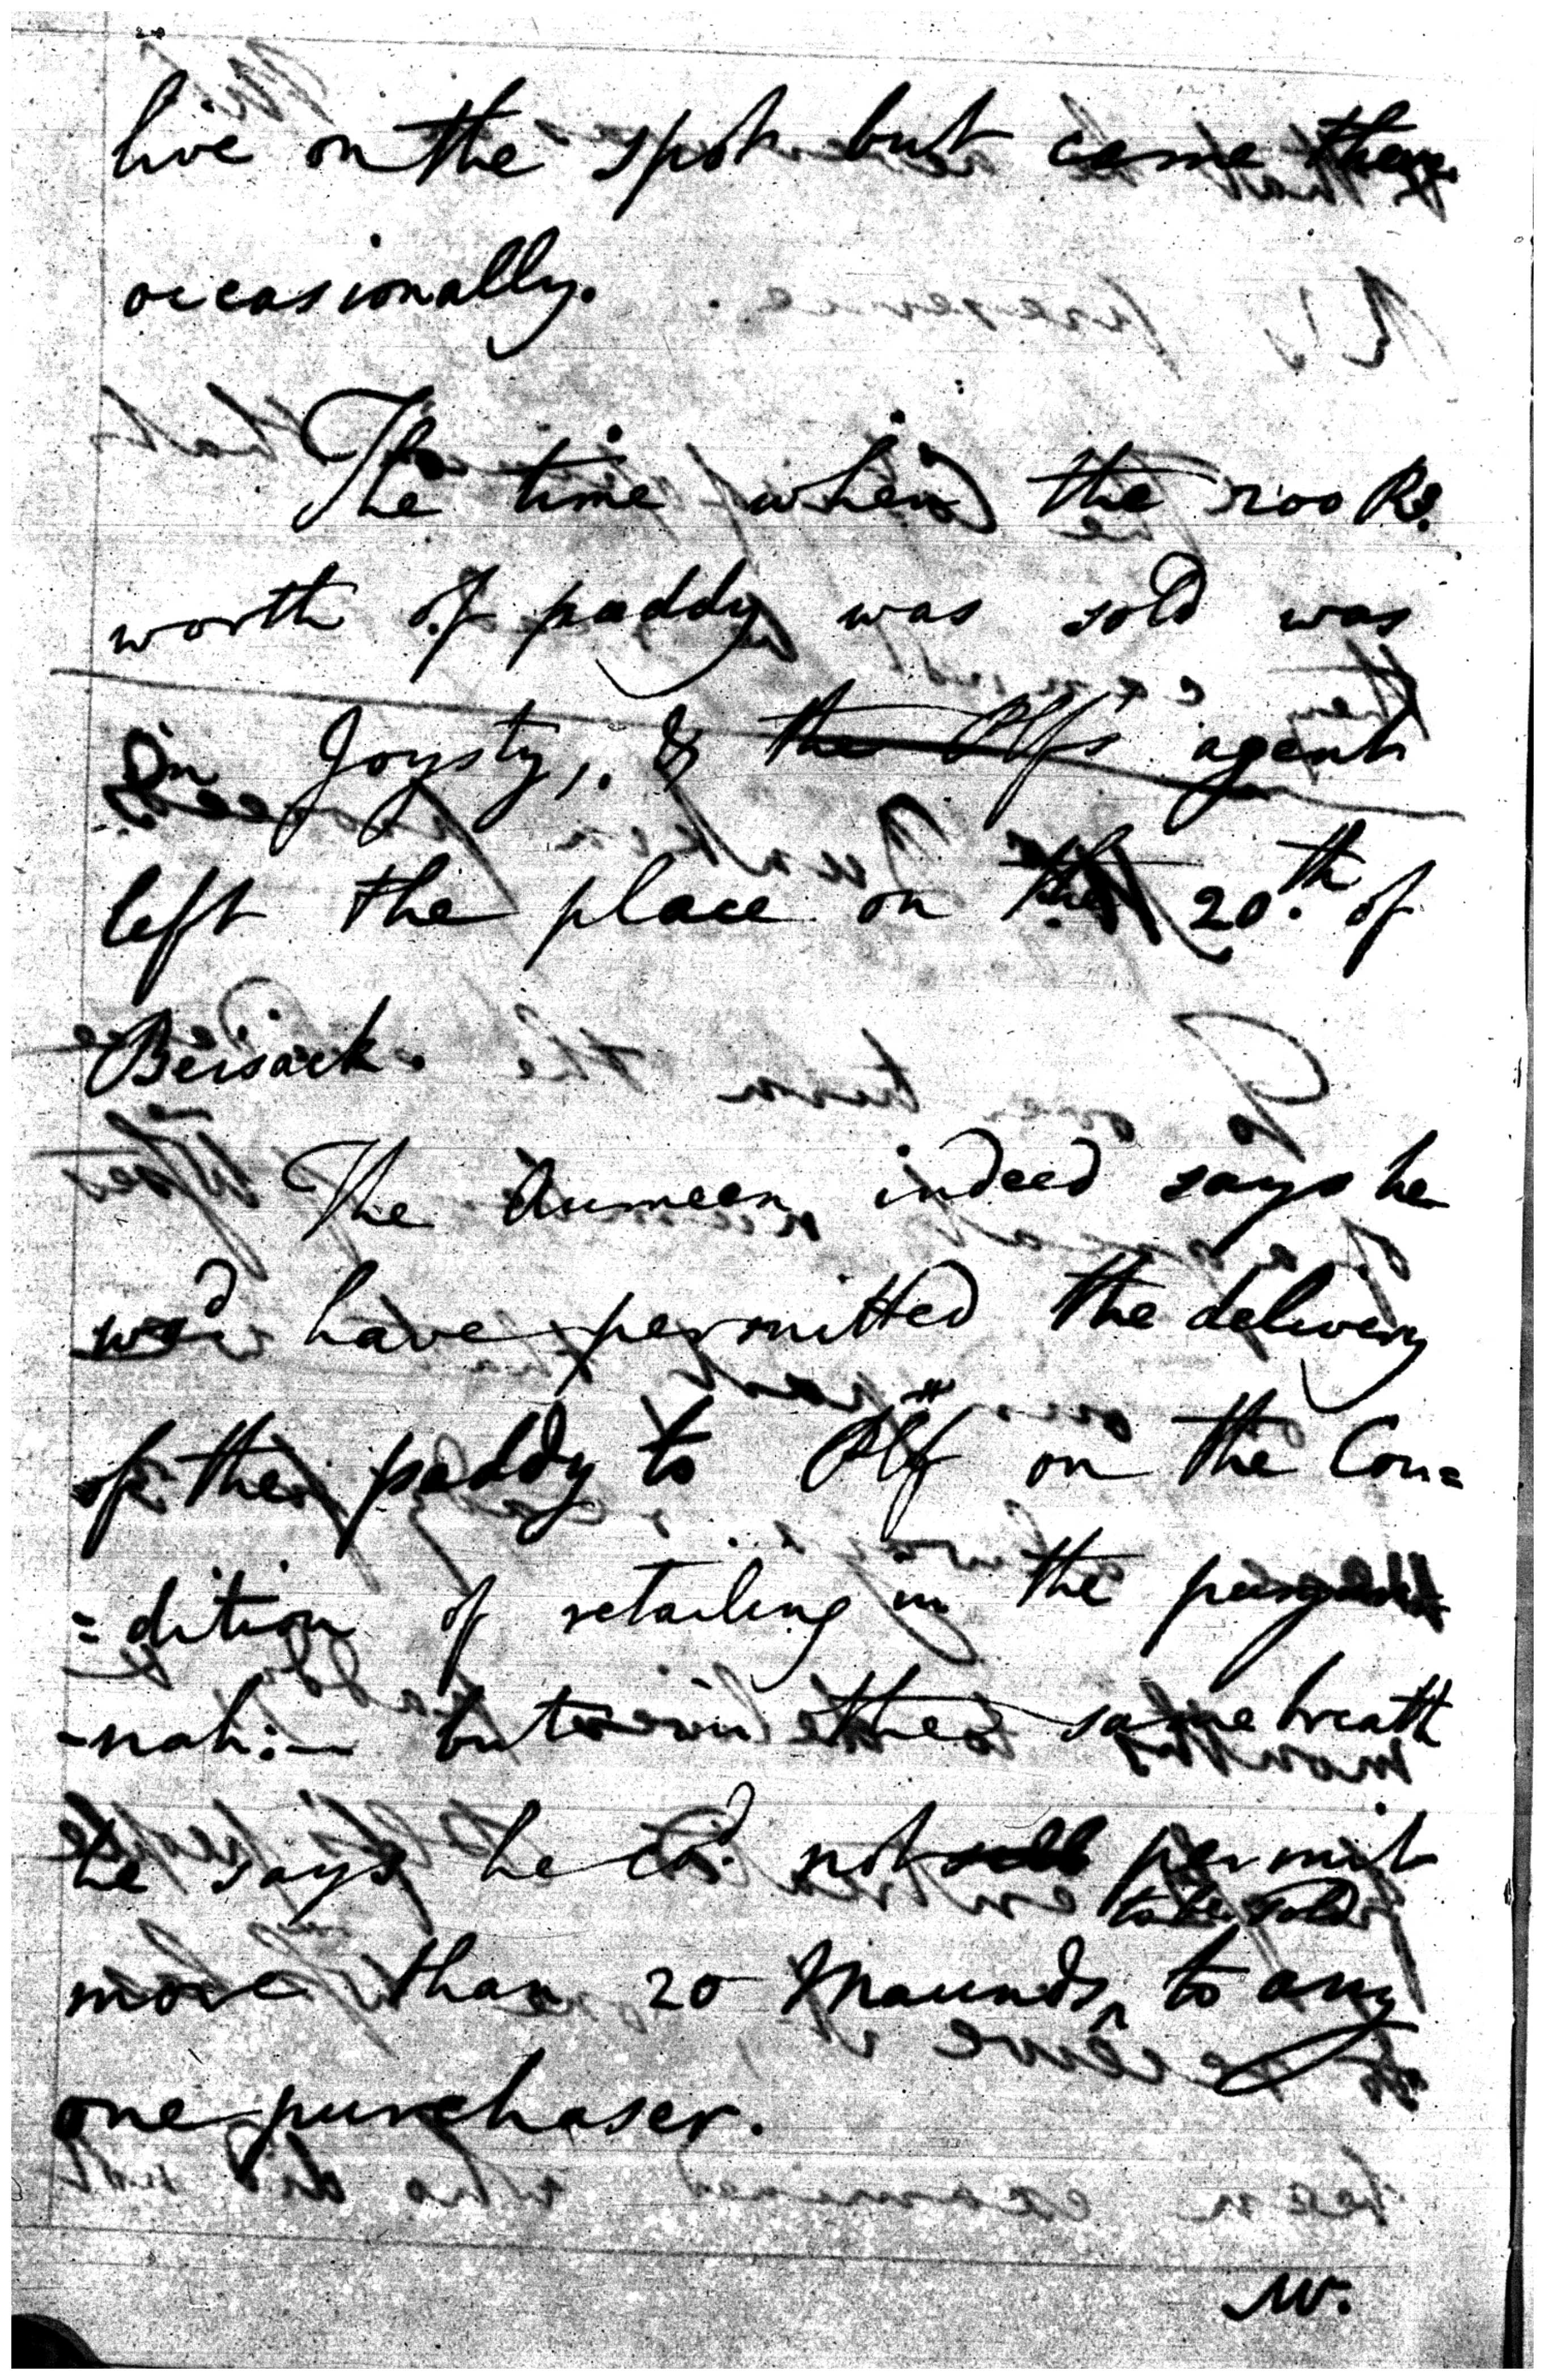 live on the spot but came there
occasionally.
The time when the 200 Rs.
worth of paddy was sold was
in Joysty, & the Plf's agent
left the place on the 20.th of
Beisack.
The Aumeen indeed says he
wod have permitted the delivery
of the paddy to Plff on the Con=
=dition of retailing in the purgun
-nah:- but in the same breath
he says he cd. not sell permit
to be sold
more than 20 Maunds ^ to any
one purchaser.
W.